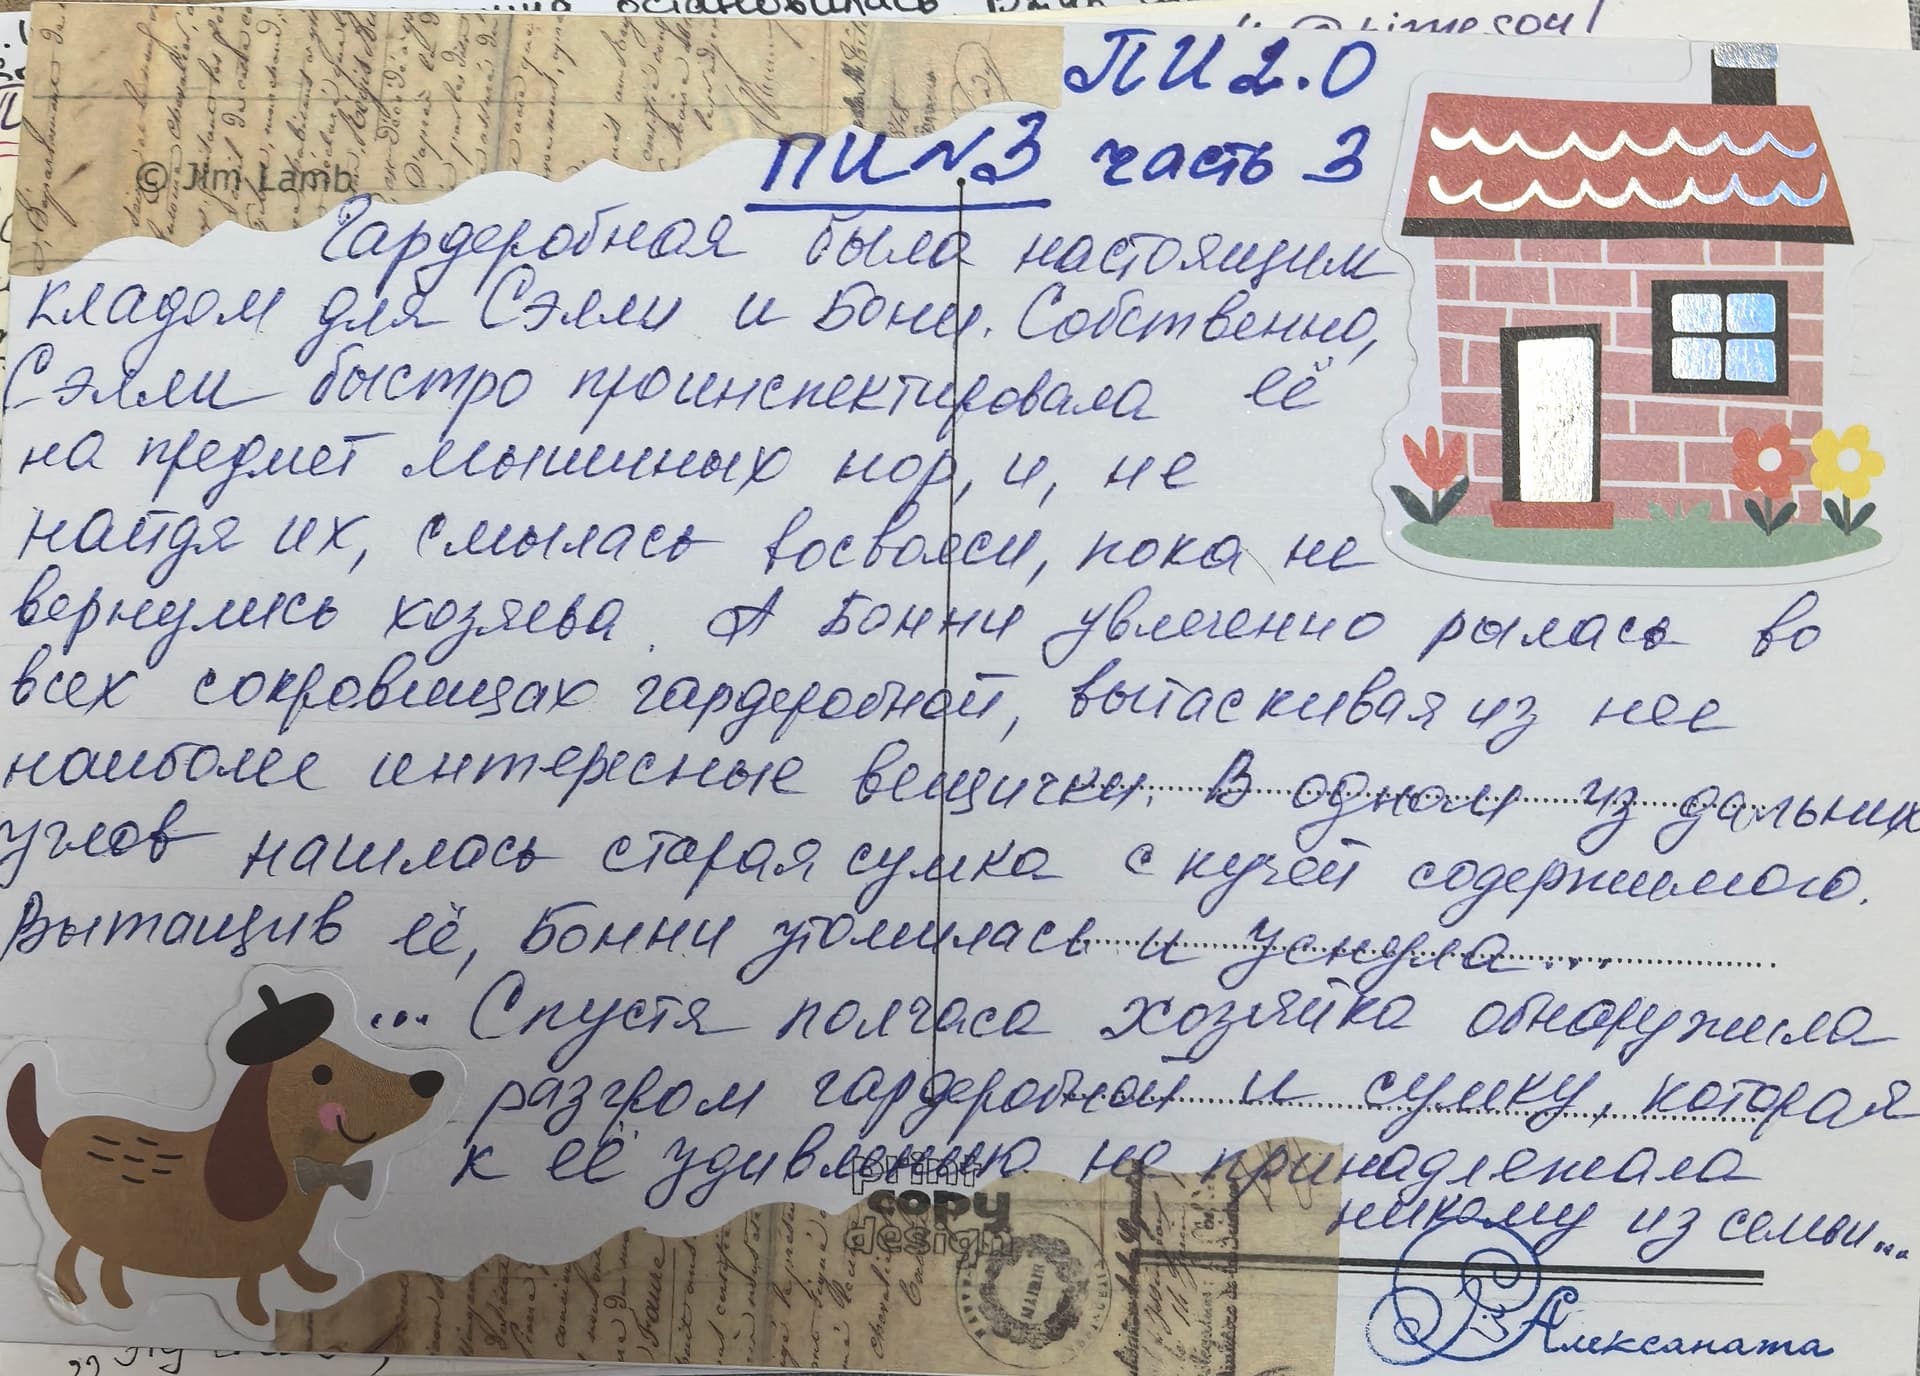 ПИ 2.0
ПИ №3 часть 3
© Jim Lamb
Гардеробная была настоящим
кладом для Сэлли и Бони. Собственно,
Сэлли быстро проинспектировала её
на предмет мышиных нор, и, не
найдя их, смылась восвояси, пока не
вернулись хозяева. А Бонни увлеченно рылась во
всех сокровищах гардеробной, вытаскивая из нее
наиболее интересные вещички. В одном из дальних
углов нашлась старая сумка с кучей содержимого.
Вытащив её, Бонни утомилась и уснула...
... Спустя полчаса хозяйка обнаружила
разгром гардеробной и сумку, которая
к её удивлению не принадлежала
никому из семьи...
print
copy
design
MAIRIE
Алексаната